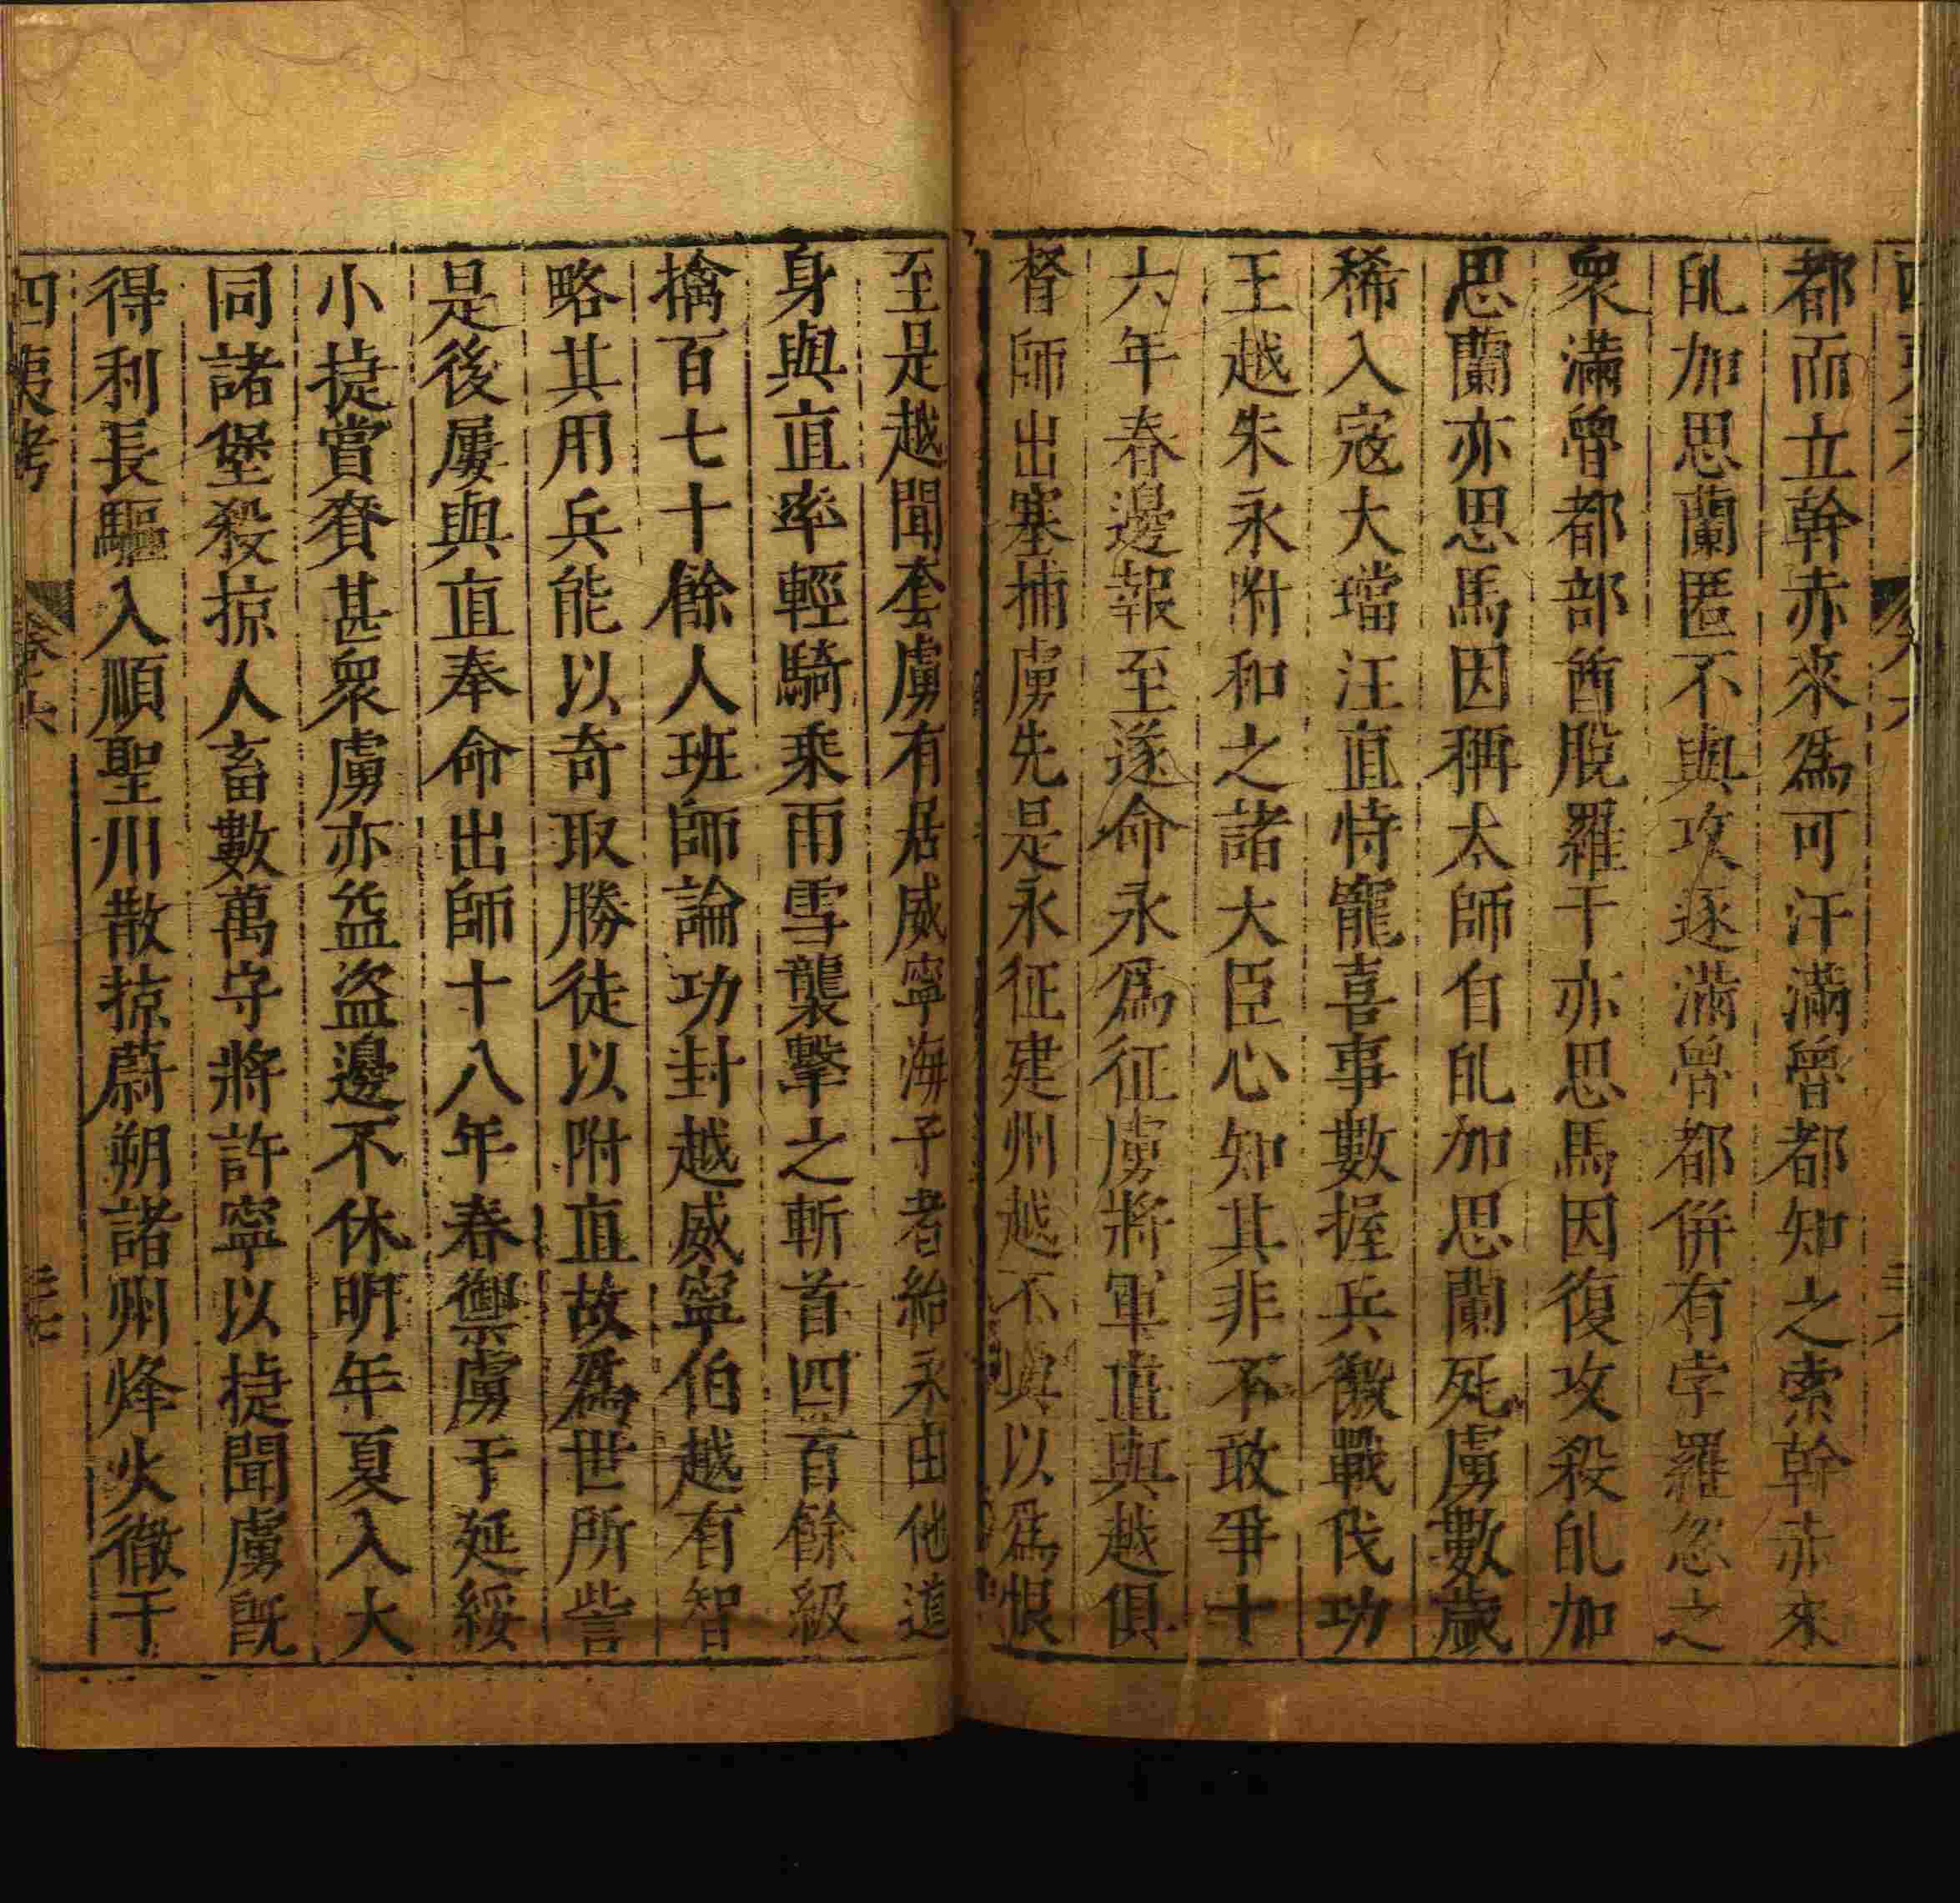 都而立幹赤來爲可汗滿魯都知之索幹赤來
癿加思蘭匿不與攻逐滿魯都併有孛羅忽之
衆滿魯都部酋脫羅干亦思馬因復攻殺癿加
思蘭亦思馬因稱太師自癿加思蘭死虜數歲
稀入寇大璫汪直恃寵喜事數握兵徼戰伐功
王越朱永附和之諸大臣心知其非不敢爭十
六年春邊報至遂命永爲征虜將軍直與越俱
督師出塞捕虜先是永征建州越不與以爲恨
至是越聞套虜有居威寧海子者紿永由他道
身與直率輕騎乘雨雪襲擊之斬首四百餘級
擒百七十餘人班師論功封越威寧伯越有智
略其用兵能以奇取勝徒以附直故爲世所訾
是後屢與直奉命出師十八年春禦虜于延綏
小捷賞賚甚衆虜亦益盜邊不休明年夏入大
同諸堡殺掠人畜數萬守將許寧以捷聞虜旣
得利長驅入順聖川散掠蔚朔諸州烽火徹于
四夷考 卷之六 三七